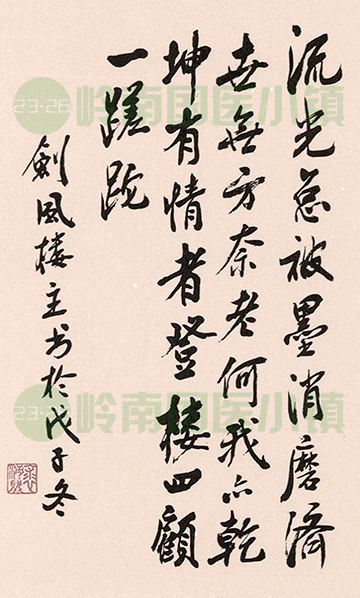 流光总被墨消磨濟
世無方奈老何我亦乾
坤有情者登楼四顧
一蹉跎
劍風楼主书於戊子冬
23·26 岭南国医小镇
23·26 岭南国医小镇